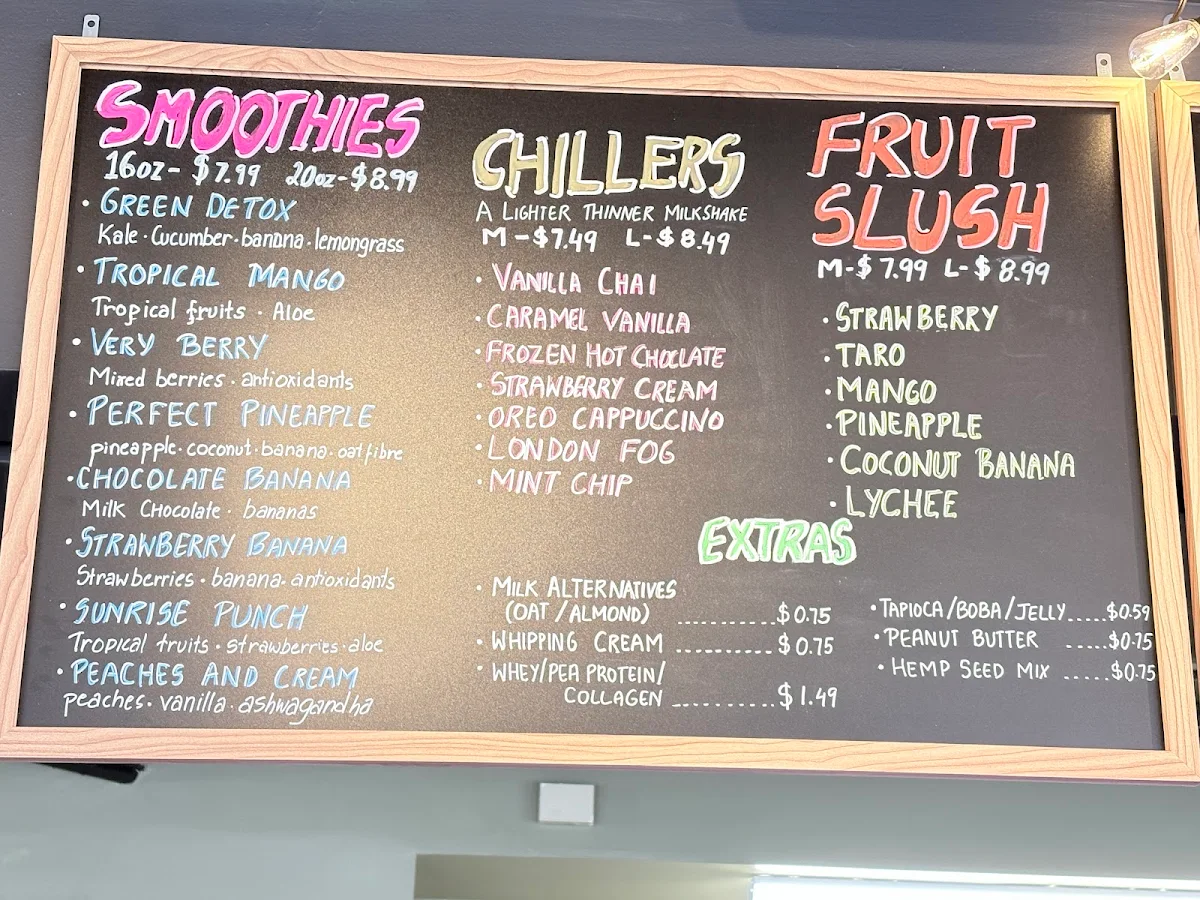 SMOOTHIES
16oz- $7.99 20oz-$8.99
• GREEN DETOX
Kale · Cucumber · banana · lemongrass
• TROPICAL MANGO
Tropical fruits · Aloe
• VERY BERRY
Mixed berries · antioxidants
• PERFECT PINEAPPLE
pineapple · coconut · banana · oat fibre
• CHOCOLATE BANANA
Milk Chocolate · bananas
• STRAWBERRY BANANA
Strawberries · banana · antioxidants
• SUNRISE PUNCH
Tropical fruits · strawberries · aloe
• PEACHES AND CREAM
peaches · vanilla · ashwagandha
CHILLERS
A LIGHTER THINNER MILKSHAKE
M -$7.49 L-$8.49
• VANILLA CHAI
• CARAMEL VANILLA
• FROZEN HOT CHOCLATE
• STRAWBERRY CREAM
• OREO CAPPUCCINO
• LONDON FOG
• MINT CHIP
FRUIT
SLUSH
M-$7.99 L-$8.99
• STRAWBERRY
• TARO
• MANGO
• PINEAPPLE
• COCONUT BANANA
• LYCHEE
EXTRAS
• MILK ALTERNATIVES
(OAT/ALMOND) ..........$0.75
• WHIPPING CREAM ..........$0.75
• WHEY/PEA PROTEIN/
COLLAGEN ..........$1.49
• TAPIOCA/BOBA/JELLY.....$0.59
• PEANUT BUTTER .....$0.75
• HEMP SEED MIX .....$0.75